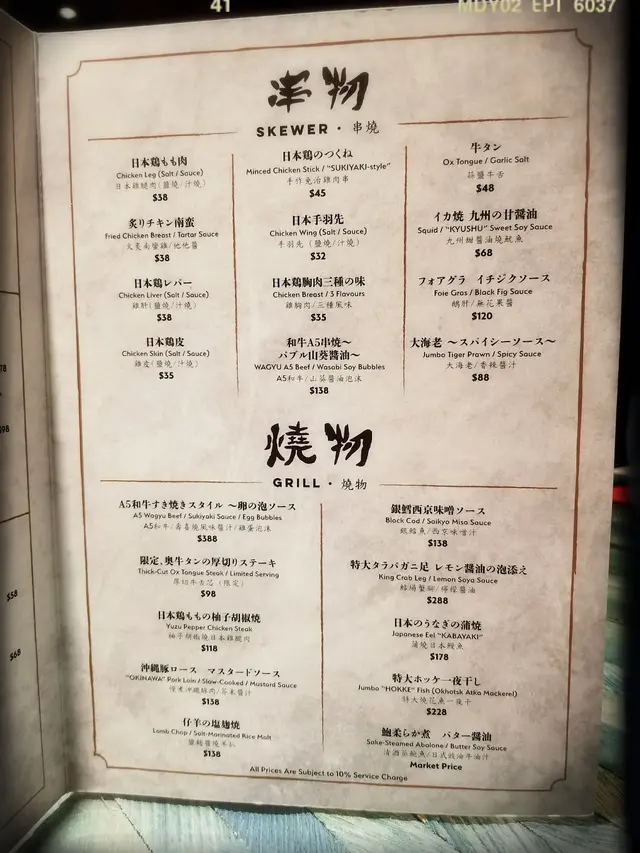 41
MDY02 EPT 6037
串物
SKEWER・串燒
日本鶏もも肉
Chicken Leg (Salt / Sauce)
日本雞腿肉(鹽燒/汁燒)
$38
炙りチキン南蛮
Fried Chicken Breast / Tartar Sauce
火炙南蠻雞/他他醬
$38
日本鶏レバー
Chicken Liver (Salt / Sauce)
雞肝(鹽燒/汁燒)
$38
日本鶏皮
Chicken Skin (Salt / Sauce)
雞皮(鹽燒/汁燒)
$35
日本鶏のつくね
Minced Chicken Stick / "SUKIYAKI-style"
手作免治雞肉串
$45
日本手羽先
Chicken Wing (Salt / Sauce)
手羽先 (鹽燒/汁燒)
$32
日本鶏胸肉三種の味
Chicken Breast / 3 Flavours
雞胸肉/三種風味
$35
和牛A5串焼～
バブル山葵醤油～
WAGYU A5 Beef / Wasabi Soy Bubbles
A5和牛/山葵醬油泡沫
$138
牛タン
Ox Tongue / Garlic Salt
蒜鹽牛舌
$48
イカ焼 九州の甘醤油
Squid / "KYUSHU" Sweet Soy Sauce
九州甜醬油燒魷魚
$68
フォアグラ イチジクソース
Foie Gras / Black Fig Sauce
鵝肝/無花果醬
$120
大海老 ～スパイシーソース～
Jumbo Tiger Prawn / Spicy Sauce
大海老/香辣醬汁
$88
燒物
GRILL・燒物
A5和牛すき焼きスタイル ～卵の泡ソース
A5 Wagyu Beef / Sukiyaki Sauce / Egg Bubbles
A5和牛/壽喜燒風味醬汁/雞蛋泡沫
$388
限定、奥牛タンの厚切りステーキ
Thick-Cut Ox Tongue Steak / Limited Serving
厚切牛舌芯 (限定)
$98
日本鶏ももの柚子胡椒焼
Yuzu Pepper Chicken Steak
柚子胡椒燒日本雞腿肉
$118
沖縄豚ロース マスタードソース
"OKINAWA" Pork Loin / Slow-Cooked / Mustard Sauce
慢煮沖繩豚肉/芥末醬汁
$138
仔羊の塩麹焼
Lamb Chop / Salt-Marinated Rice Malt
$138
銀鱈西京味噌ソース
Black Cod / Saikyo Miso Sauce
銀鱈魚/西京味噌汁
$138
特大タラバガニ足 レモン醤油の泡添え
King Crab Leg / Lemon Soya Sauce
鱈場蟹腳/檸檬醬油
$288
日本のうなぎの蒲焼
Japanese Eel "KABAYAKI"
蒲燒日本鰻魚
$178
特大ホッケ一夜干し
Jumbo "HOKKE" Fish (Okhotsk Atka Mackerel)
特大燒花魚一夜干
$228
鮑柔らか煮 バター醤油
Sake-Steamed Abalone / Butter Soy Sauce
清酒蒸鮑魚/日式豉油牛油汁
Market Price
All Prices Are Subject to 10% Service Charge
$98
$58
$68